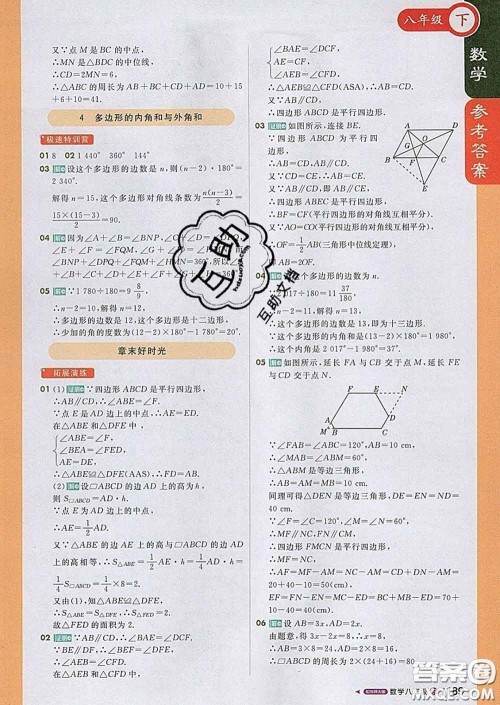 八年级 下
数学
参考答案
又∵点 M 是 BC 的中点,
∴MN 是△DBC 的中位线,
∴CD=2MN=6,
∴△ABC 的周长为 AB+BC+AD+CD=10+15
+6+10=41.
4 多边形的内角和与外角和
极速特训营
01 8 02 1 440° 360° 144°
03 设这个多边形的边数是 n,则(n-2)·180°=
解得 n=15,这个多边形对角线条数为 n(n-3)/2
15×(15-3)/2=90.
04 因为∠A+∠B+∠BNP=
∠E+∠F=∠FQM,∠G+
∠BNP+∠DPQ+∠FQM+
=360°,所以∠
05 ∵1 780÷180=9 8/9,
∴n-2=10,解得 n=12,
∴多边形的边数为 12,这个多边形是十二边形,
∴少加的角的度数为(12-2)×180°-1 780°=20°.
章末好时光
拓展演练
01 (1)∵四边形 ABCD 是平行四边形,
∴AB∥CD,∴∠ABE=∠F.
∵点 E 是 AD 边上的中点,∴AE=DE.
在△ABE 和△DFE 中,
∠ABE=∠F,
∠BEA=∠FED,
AE=DE,
∴△ABE≌△DFE(AAS),∴FD=AB.
(2)设□ABCD 的高为 h,
则 S□ABCD=AD·h.
∵点 E 为 AD 边上的中点,
∴AE=1/2AD.
又∵△ABE 的边上的高与□ABCD 的高相等,
∴S△ABE=1/2·AE·h=1/2×1/2AD·h=1/4
S□ABCD=1/4×8=2.
又由(1),知△ABE≌△DFE,
∴S△ABE=S△DFE,∴S△FED=2.
故△FED 的面积为 2.
02 ∵AB∥CD,∴∠BAE=∠DCF.
∵BE∥DF,∴∠BEF=∠DFE,
∴∠AEB=∠CFD.
在△AEB 和△CFD 中,
∠BAE=∠DCF,
AE=CF,
∠AEB=∠CFD,
∴△AEB≌△CFD,∴AB=CD.
03 如图所示,连接 BE.
∵四边形 ABCD 为平行四
边形,
∴AB∥CD,AB=CD,
AO=CO.
∵CE=CD,
∴AB∥CE,AB=CE,
∴四边形 ABEC 为平行四边形,
∴BF=CF(平行四边形的对角线互相平分).
∴OF=1/2AB(三角形中位线定理),
即 AB=2OF.
04 设这个多边形的边数为 n,
017÷180=11 37/180,
∴n-2=11,解得 n=13,
∴这个多边形的内角和为(13-2)×180°=1 980°,
∴这个外角的度数为 2 017°-1 980°=37°.
∴这个多边形是十三边形,这个外角的度数是 37°.
05 如图所示,延长 FA 与 CB 交于点 M,延长 FE
与 CD 交于点 N.
F E N
A D
M B C
∵∠FAB=∠ABC=120°,AB=10 cm,
∴∠MAB=∠ABM=60°,
∴△ABM 是等边三角形,
∴∠M=60°,AM=AB=10 cm.
同理可得△DEN 是等边三角形,
∴∠N=60°,EN=DE=10 cm.
∵∠F=∠C=120°,∴∠M+∠F=180°,
∠N+∠F=180°,
∴MC∥FN,FM∥CN,
∴四边形 FMCN 是平行四边形.
∵AF=MF-AM=FM-10=CD+DE-10=
20+40-10=50(cm),
∴AB+BC+CD+DE+EF+AF=10+70+
40+20+60+50=250(cm),
∴六边形 ABCDEF 的周长为 250 cm.
06 设 AB=3x,AD=2x,
由题意,得 3x-2x=8,解得 x=8,
∴AB=3x=24,AD=2x=16,
∴□ABCD 的周长为 2×(24+16)=80.
数学八
89
互助
互助文档
答案圈